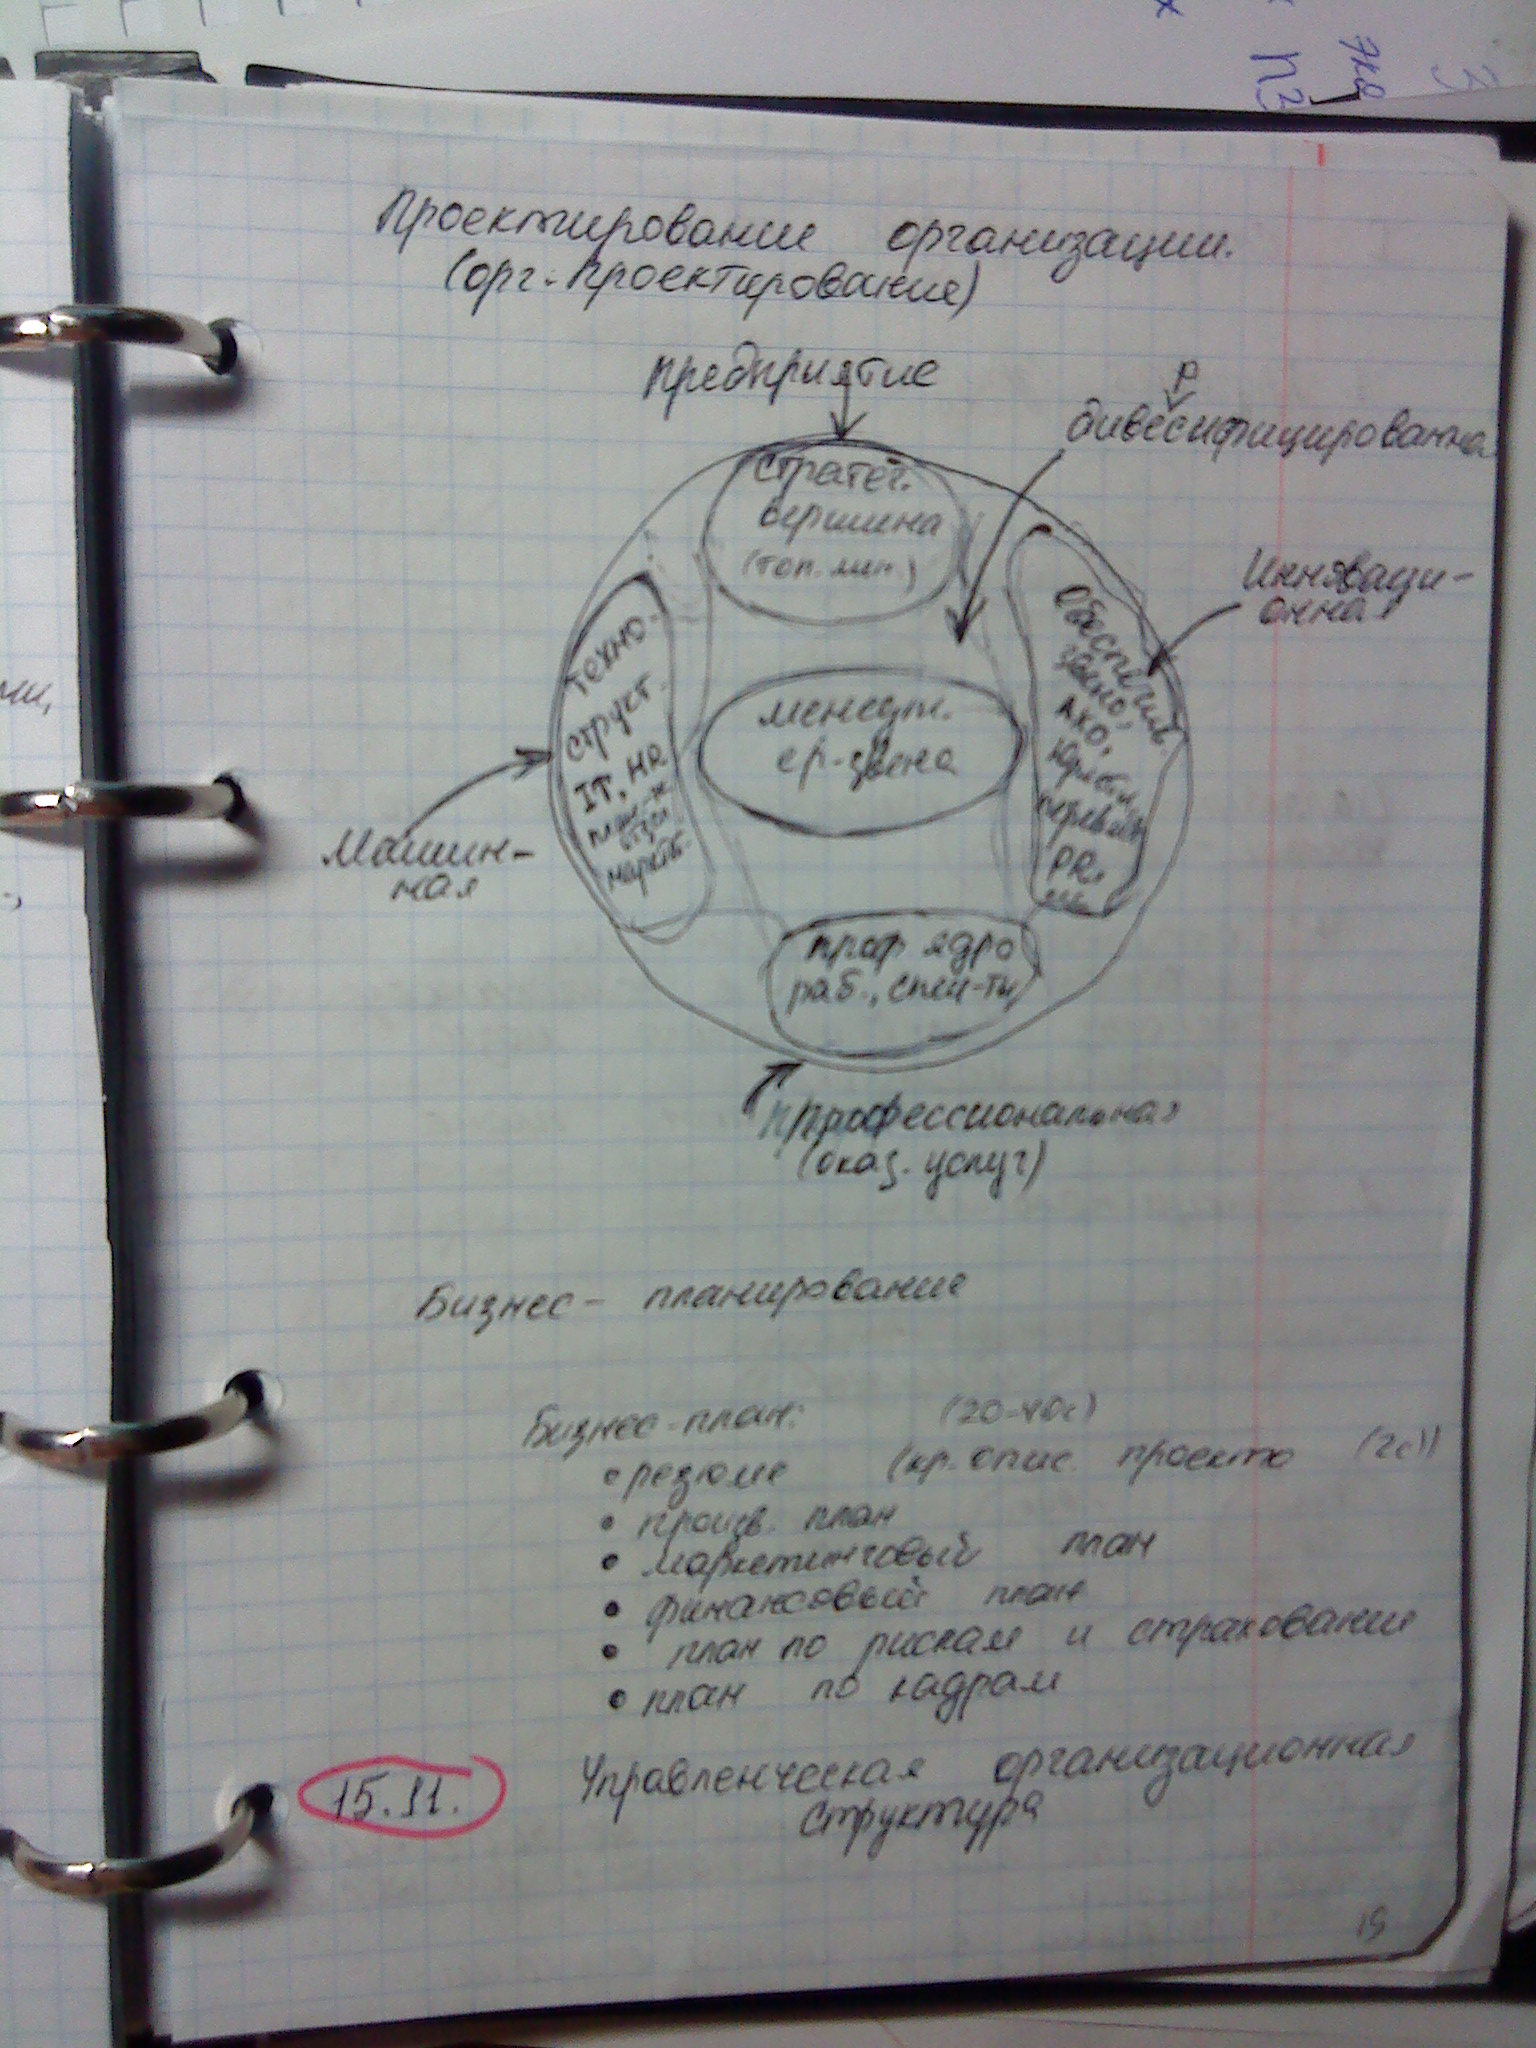 Проектирование организации.
(орг. проектирование)
предприятие
р
дивесифицированна
стратег.
вершина
(топ. мин.)
Инноваци-
онная
техно-
структ.
IT, HR
план-
отдел
маркет.
менедж.
ер-звена
Обеспечив.
АХО,
юристы,
PR
Машин-
ная
проф ядро
раб., спец-ты
Профессиональная
(оказ. услуг)
Бизнес - планирование
Бизнес-план: (20-40с)
• резюме (кр. опис. проекта (2с))
• произв. план
• маркетинговый план
• финансовый план
• план по рискам и страховании
• план по кадрам
15.11. Управленческая организационная
структура
19